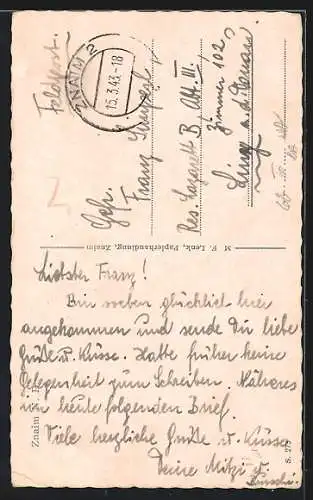 Feldpost.
ZNAIM 2
15.3.43-18
Gefr.
Franz
Res. Lazarett B Abt. III.
Zimmer 102
Linz a. d. Donau
M. F. Lenk, Papierhandlung, Znaim
Liebster Franz!
Bin soeben glücklich hier
angekommen und sende Dir liebe
Grüße u. Küsse. Hatte früher keine
Gelegenheit zum Schreiben. Näheres
im heute folgenden Brief.
Viele herzliche Grüße u. Küsse
Deine Mitzi u.
Znaim
S. 278